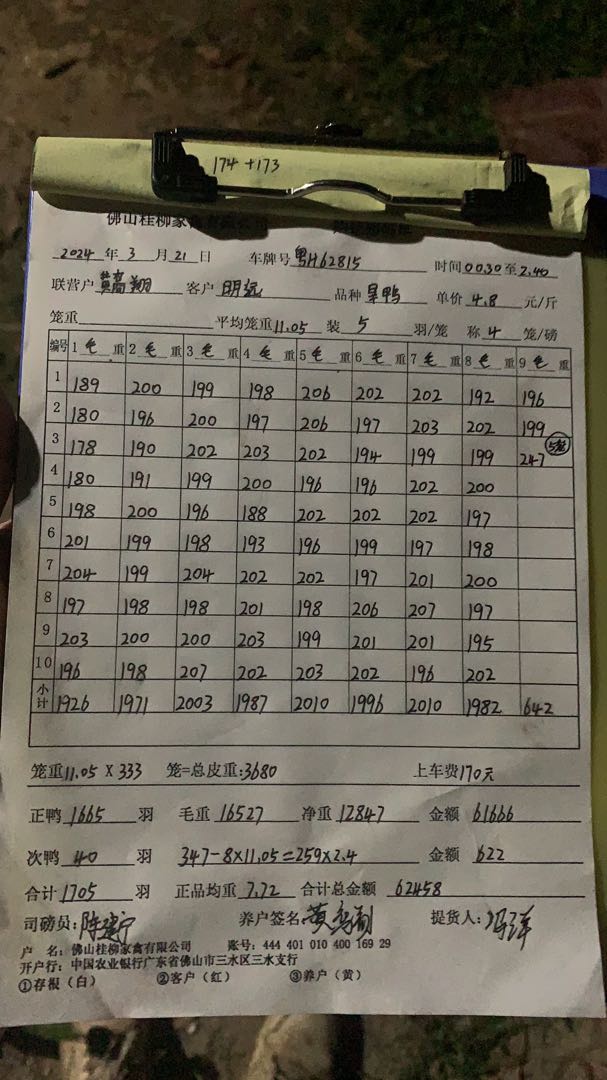 174+173
佛山桂柳家禽有限公司
2024 年 3 月 21 日 车牌号 粤H62815 时间 00.30 至 2.40
联营户 黄高翔 客户 明远 品种 单价 4.8 元/斤
笼重 平均笼重 11.05 装 5 羽/笼 称 4 笼/磅
编号 1 毛 重 2 毛 重 3 毛 重 4 毛 重 5 毛 重 6 毛 重 7 毛 重 8 毛 重 9 毛 重
1 189 200 199 198 206 202 202 192 196
2 180 196 200 197 206 197 203 202 199
3 178 190 202 203 202 194 199 199 247
4 180 191 199 200 196 196 202 200
5 198 200 196 188 202 202 202 197
6 201 199 198 193 196 199 197 198
7 204 199 204 202 202 197 201 200
8 197 198 198 201 198 206 207 197
9 203 200 200 203 199 201 201 195
10 196 198 207 202 203 202 196 202
小计 1926 1971 2003 1987 2010 1996 2010 1982 642
笼重 11.05 X 333 笼=总皮重:3680 上车费170元
正鸭 1665 羽 毛重 16527 净重 12847 金额 61666
次鸭 40 羽 347-8×11.05=259×2.4 金额 622
合计 1705 羽 正品均重 7.72 合计总金额 62458
司磅员: 养户签名: 提货人:
户 名: 佛山桂柳家禽有限公司 账号: 444 401 010 400 169 29
开户行: 中国农业银行广东省佛山市三水区三水支行
①存根（白） ②客户（红） ③养户（黄）